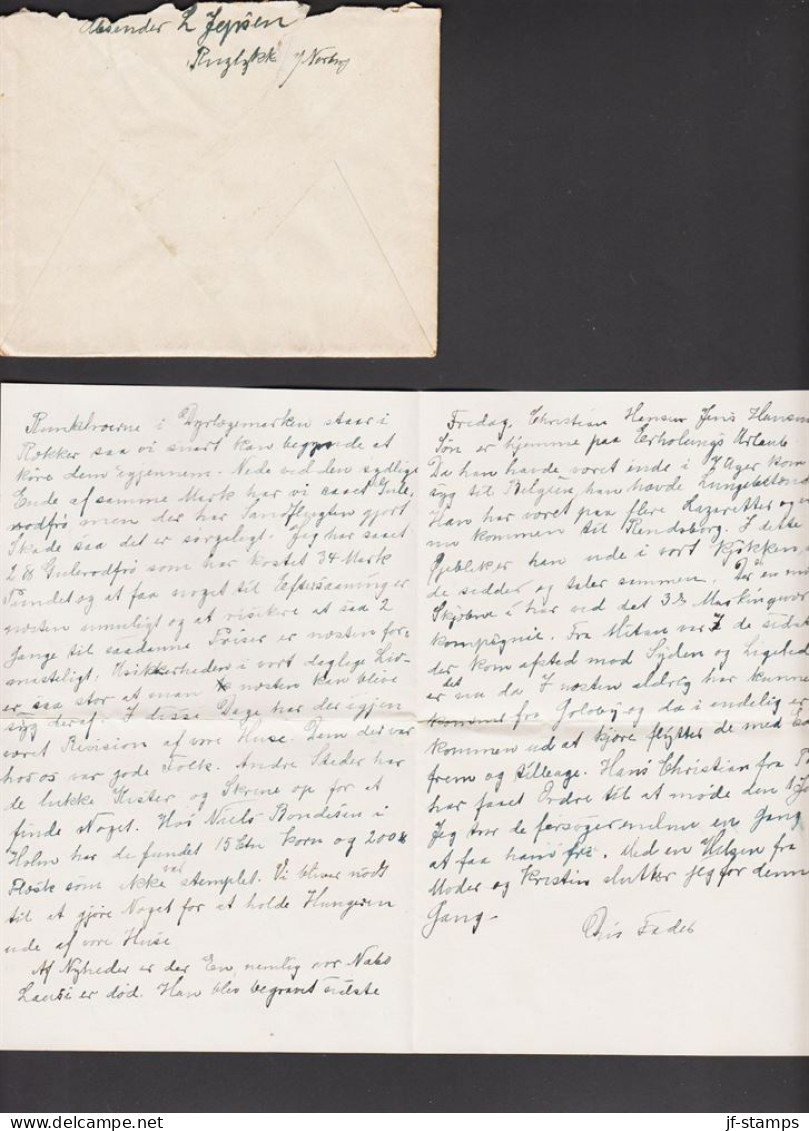 Absender L Jepsen
Norbg
Runkelroerne i Dyrlægemarken staar i
Rækker saa vi snart kan begynde at
köre dem egjennem. Nede ved den sydlige
Ende af samme Mark har vi saaet Gule
rodfrö men der har Sandflugten gjort
Skade saa det er sørgeligt. Jeg har saaet
2 ℔ Gulerodfrö som har kostet 34 Mark
Pundet og at faa noget til Eftersaaning er
næsten umuligt og at risikere at saa 2
Gange til saadanne Priser er næsten for-
masteligt. Usikkerheden i vort daglige Liv
er saa stor at man næsten kan blive
syg deraf. I disse Dage har der igjen
været Revision af vore Huse. Dem der var
hos os var gode Folk. Andre Steder har
de lukke Kister og Skrine op for at
finde Noget. Hos Niels Bondesen i
Holm har de fundet 15 Ctn Korn og 200 ℔
Flæsk som ikke var stemplet. Vi bliver nödt
til at gjöre Noget for at holde Hungeren
ude af vore Huse
Af Nyheder er der En, nemlig vor Nabo
er död. Han blev begravet sidste
Fredag. Christian Hansen Jens Hansens
Sön er hjemme paa Erholungs Urlaub
Da han havde været inde i kom
syg til Belgien, han havde
Han har været paa flere Lazaretter og
nu kommen til Rendsborg. I dette
Öjeblik er han ude i vort Kjökken
de sidder og taler sammen. Der er en
her ved det 3die
kompagnie. Fra Mitsen var I de sidste
der kom afsted mod Syden og Ligeled
er det nu da I næsten aldrig har kunne
kommer fra og da i endelig er
kommen ud at kjöre flytter de med
frem og tilbage. Hans Christian fra
har faaet Ordre til at möde den 1
Jeg tror de forsöger endnu en Gang
at faa ham fri. Med en Hilsen fra
Moder og Kristin slutter jeg for denne
Gang-
Din Fader
jf-stamps